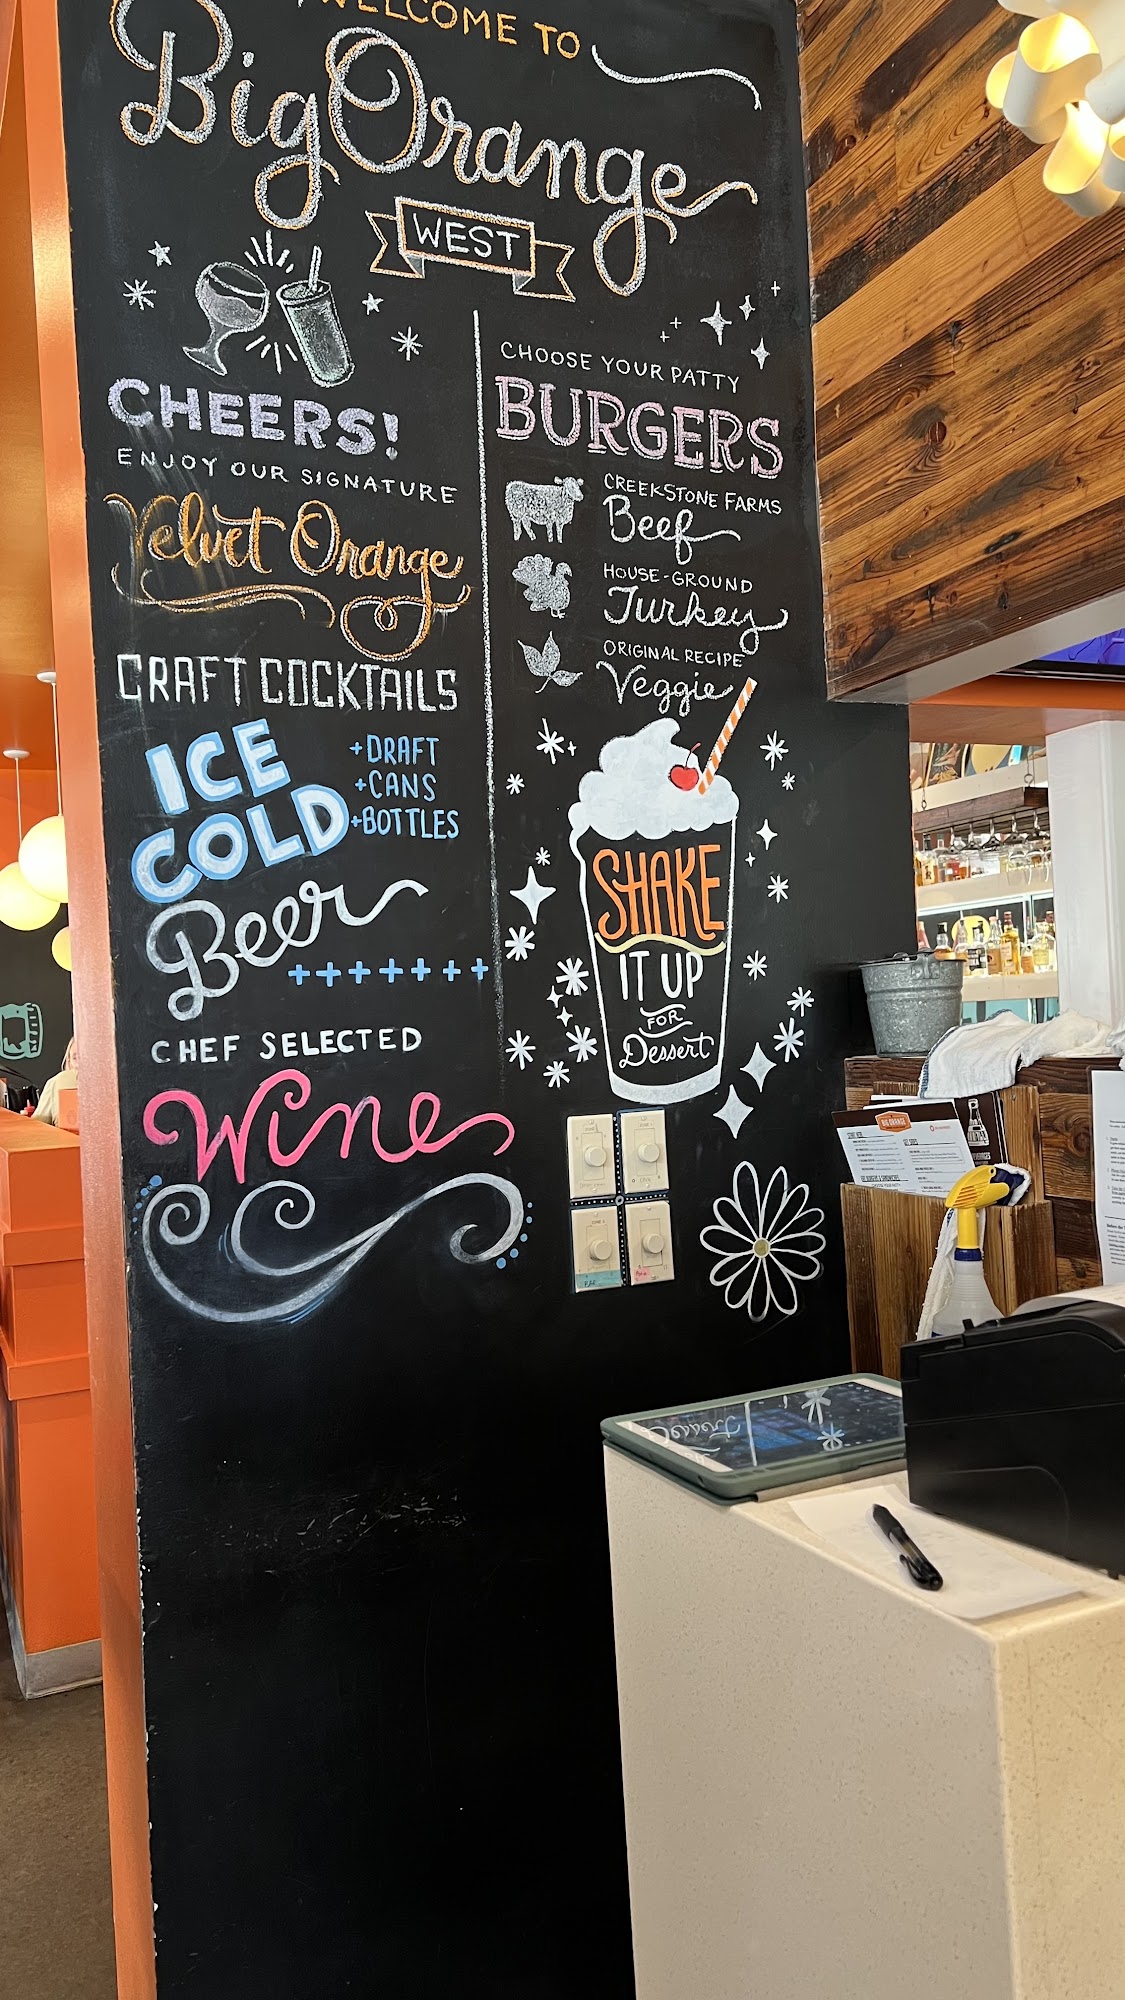 WELCOME TO
Big Orange
WEST
CHEERS!
ENJOY OUR SIGNATURE
Velvet Orange
CRAFT COCKTAILS
ICE
COLD
Beer
+DRAFT
+CANS
+BOTTLES
+++++++
CHEF SELECTED
Wine
CHOOSE YOUR PATTY
BURGERS
CREEKSTONE FARMS
Beef
HOUSE-GROUND
Turkey
ORIGINAL RECIPE
Veggie
SHAKE
IT UP
FOR
Dessert
BIG ORANGE